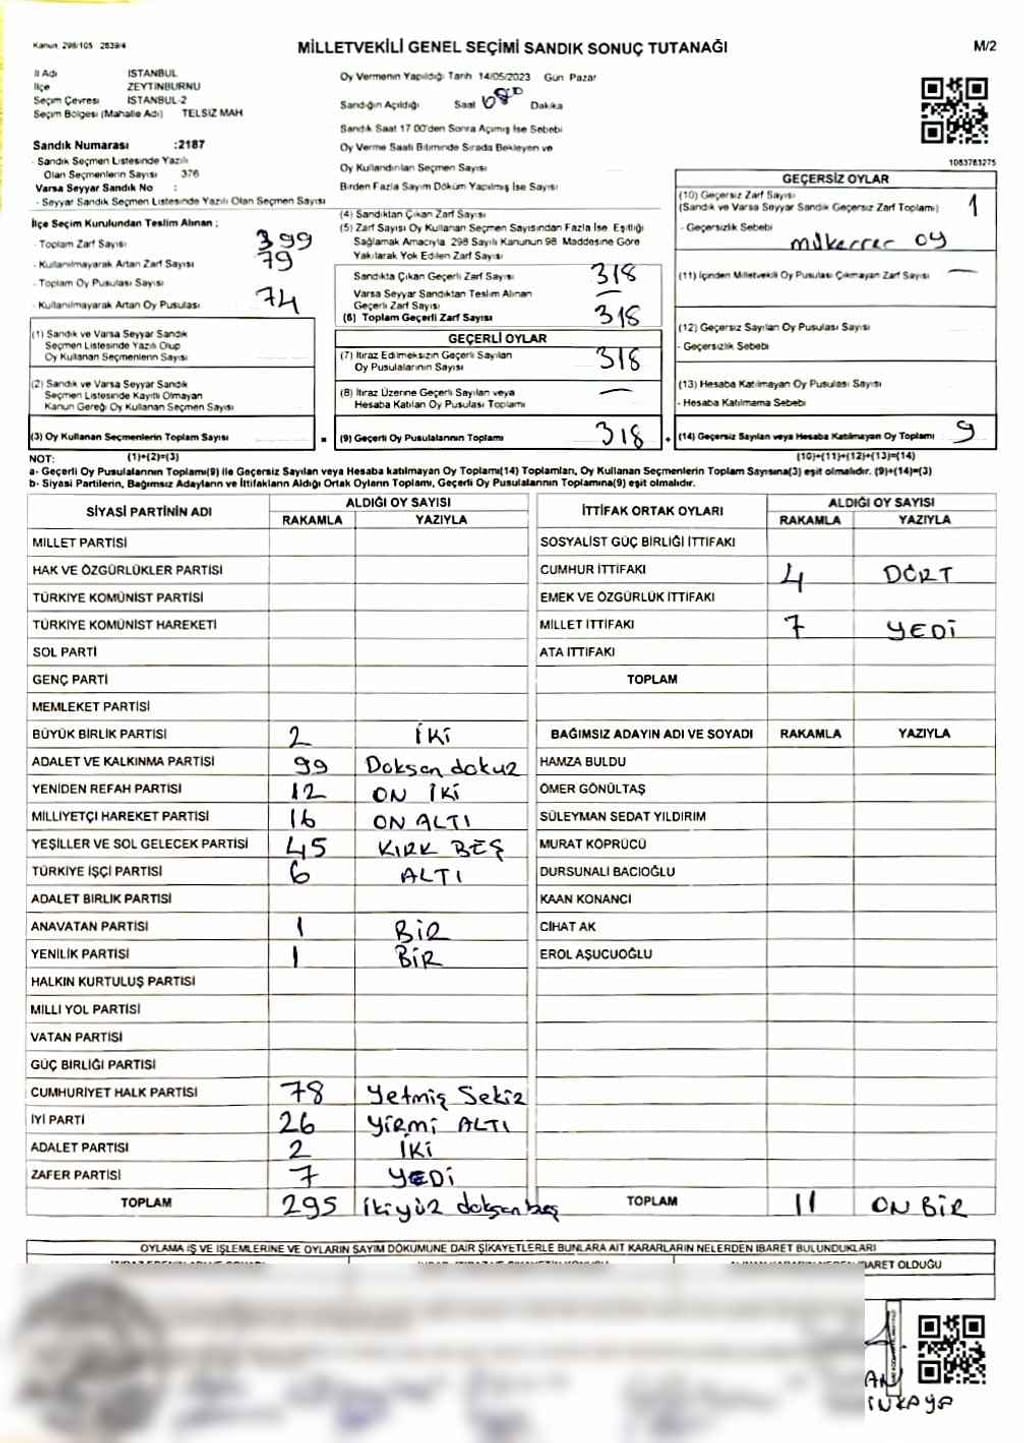 Kanun 298/105 2839/4
MİLLETVEKİLİ GENEL SEÇİMİ SANDIK SONUÇ TUTANAĞI
M/2
İl Adı İSTANBUL
İlçe ZEYTİNBURNU
Seçim Çevresi İSTANBUL-2
Seçim Bölgesi (Mahalle Adı) TELSİZ MAH
Oy Vermenin Yapıldığı Tarih 14/05/2023 Gün Pazar
Sandığın Açıldığı Saat Dakika
Sandık Saat 17 00'den Sonra Açımış İse Sebebi
Oy Verme Saati Bitiminde Sırada Bekleyen ve
Oy Kullandırılan Seçmen Sayısı
Birden Fazla Sayım Döküm Yapılmış İse Sayısı
Sandık Numarası :2187
- Sandık Seçmen Listesinde Yazılı
Olan Seçmenlerin Sayısı 376
Varsa Seyyar Sandık No :
- Seyyar Sandık Seçmen Listesinde Yazılı Olan Seçmen Sayısı
İlçe Seçim Kurulundan Teslim Alınan :
- Toplam Zarf Sayısı 399
- Kullanılmayarak Artan Zarf Sayısı 79
- Toplam Oy Pusulası Sayısı
- Kullanılmayarak Artan Oy Pusulası 74
(1) Sandık ve Varsa Seyyar Sandık
Seçmen Listesinde Yazılı Olup
Oy Kullanan Seçmenlerin Sayısı
(2) Sandık ve Varsa Seyyar Sandık
Seçmen Listesinde Kayıtlı Olmayan
Kanun Gereği Oy Kullanan Seçmen Sayısı
(3) Oy Kullanan Seçmenlerin Toplam Sayısı
(4) Sandıktan Çıkan Zarf Sayısı
(5) Zarf Sayısı Oy Kullanan Seçmen Sayısından Fazla İse Eşitliği
Sağlamak Amacıyla 298 Sayılı Kanunun 98 Maddesine Göre
Yakılarak Yok Edilen Zarf Sayısı
Sandıkta Çıkan Geçerli Zarf Sayısı 318
Varsa Seyyar Sandıktan Teslim Alınan
Geçerli Zarf Sayısı —
(6) Toplam Geçerli Zarf Sayısı 318
GEÇERLİ OYLAR
(7) İtiraz Edilmeksizin Geçerli Sayılan
Oy Pusulalarının Sayısı 318
(8) İtiraz Üzerine Geçerli Sayılan veya
Hesaba Katılan Oy Pusulası Toplamı —
= (9) Geçerli Oy Pusulalarının Toplamı 318
1083783275
GEÇERSİZ OYLAR
(10) Geçersiz Zarf Sayısı
(Sandık ve Varsa Seyyar Sandık Geçersiz Zarf Toplamı) 1
- Geçersizlik Sebebi
mükerrer oy
(11) İçinden Milletvekili Oy Pusulası Çıkmayan Zarf Sayısı —
(12) Geçersiz Sayılan Oy Pusulası Sayısı
- Geçersizlik Sebebi
(13) Hesaba Katılmayan Oy Pusulası Sayısı
- Hesaba Katılmama Sebebi
+ (14) Geçersiz Sayılan veya Hesaba Katılmayan Oy Toplamı 9
NOT: (1)+(2)=(3) (10)+(11)+(12)+(13)=(14)
a- Geçerli Oy Pusulalarının Toplamı(9) ile Geçersiz Sayılan veya Hesaba katılmayan Oy Toplamı(14) Toplamları, Oy Kullanan Seçmenlerin Toplam Sayısına(3) eşit olmalıdır. (9)+(14)=(3)
b- Siyasi Partilerin, Bağımsız Adayların ve İttifakların Aldığı Ortak Oyların Toplamı, Geçerli Oy Pusulalarının Toplamına(9) eşit olmalıdır.
SİYASİ PARTİNİN ADI ALDIĞI OY SAYISI
RAKAMLA YAZIYLA
MİLLET PARTİSİ
HAK VE ÖZGÜRLÜKLER PARTİSİ
TÜRKİYE KOMÜNİST PARTİSİ
TÜRKİYE KOMÜNİST HAREKETİ
SOL PARTİ
GENÇ PARTİ
MEMLEKET PARTİSİ
BÜYÜK BİRLİK PARTİSİ 2 İKİ
ADALET VE KALKINMA PARTİSİ 99 Doksan dokuz
YENİDEN REFAH PARTİSİ 12 ON İKİ
MİLLİYETÇİ HAREKET PARTİSİ 16 ON ALTI
YEŞİLLER VE SOL GELECEK PARTİSİ 45 KIRK BEŞ
TÜRKİYE İŞÇİ PARTİSİ 6 ALTI
ADALET BİRLİK PARTİSİ
ANAVATAN PARTİSİ 1 BİR
YENİLİK PARTİSİ 1 BİR
HALKIN KURTULUŞ PARTİSİ
MİLLİ YOL PARTİSİ
VATAN PARTİSİ
GÜÇ BİRLİĞİ PARTİSİ
CUMHURİYET HALK PARTİSİ 78 Yetmiş Sekiz
İYİ PARTİ 26 YİRMİ ALTI
ADALET PARTİSİ 2 İKİ
ZAFER PARTİSİ 7 YEDİ
TOPLAM 295 İkiyüz doksan beş
İTTİFAK ORTAK OYLARI ALDIĞI OY SAYISI
RAKAMLA YAZIYLA
SOSYALİST GÜÇ BİRLİĞİ İTTİFAKI
CUMHUR İTTİFAKI 4 DÖRT
EMEK VE ÖZGÜRLÜK İTTİFAKI
MİLLET İTTİFAKI 7 YEDİ
ATA İTTİFAKI
TOPLAM
BAĞIMSIZ ADAYIN ADI VE SOYADI RAKAMLA YAZIYLA
HAMZA BULDU
ÖMER GÖNÜLTAŞ
SÜLEYMAN SEDAT YILDIRIM
MURAT KÖPRÜCÜ
DURSUNALİ BACIOĞLU
KAAN KONANCI
CİHAT AK
EROL AŞUCUOĞLU
TOPLAM 11 ON BİR
OYLAMA İŞ VE İŞLEMLERİNE VE OYLARIN SAYIM DÖKÜMÜNE DAİR ŞİKAYETLERLE BUNLARA AİT KARARLARIN NELERDEN İBARET BULUNDUKLARI
BARET OLDUĞU